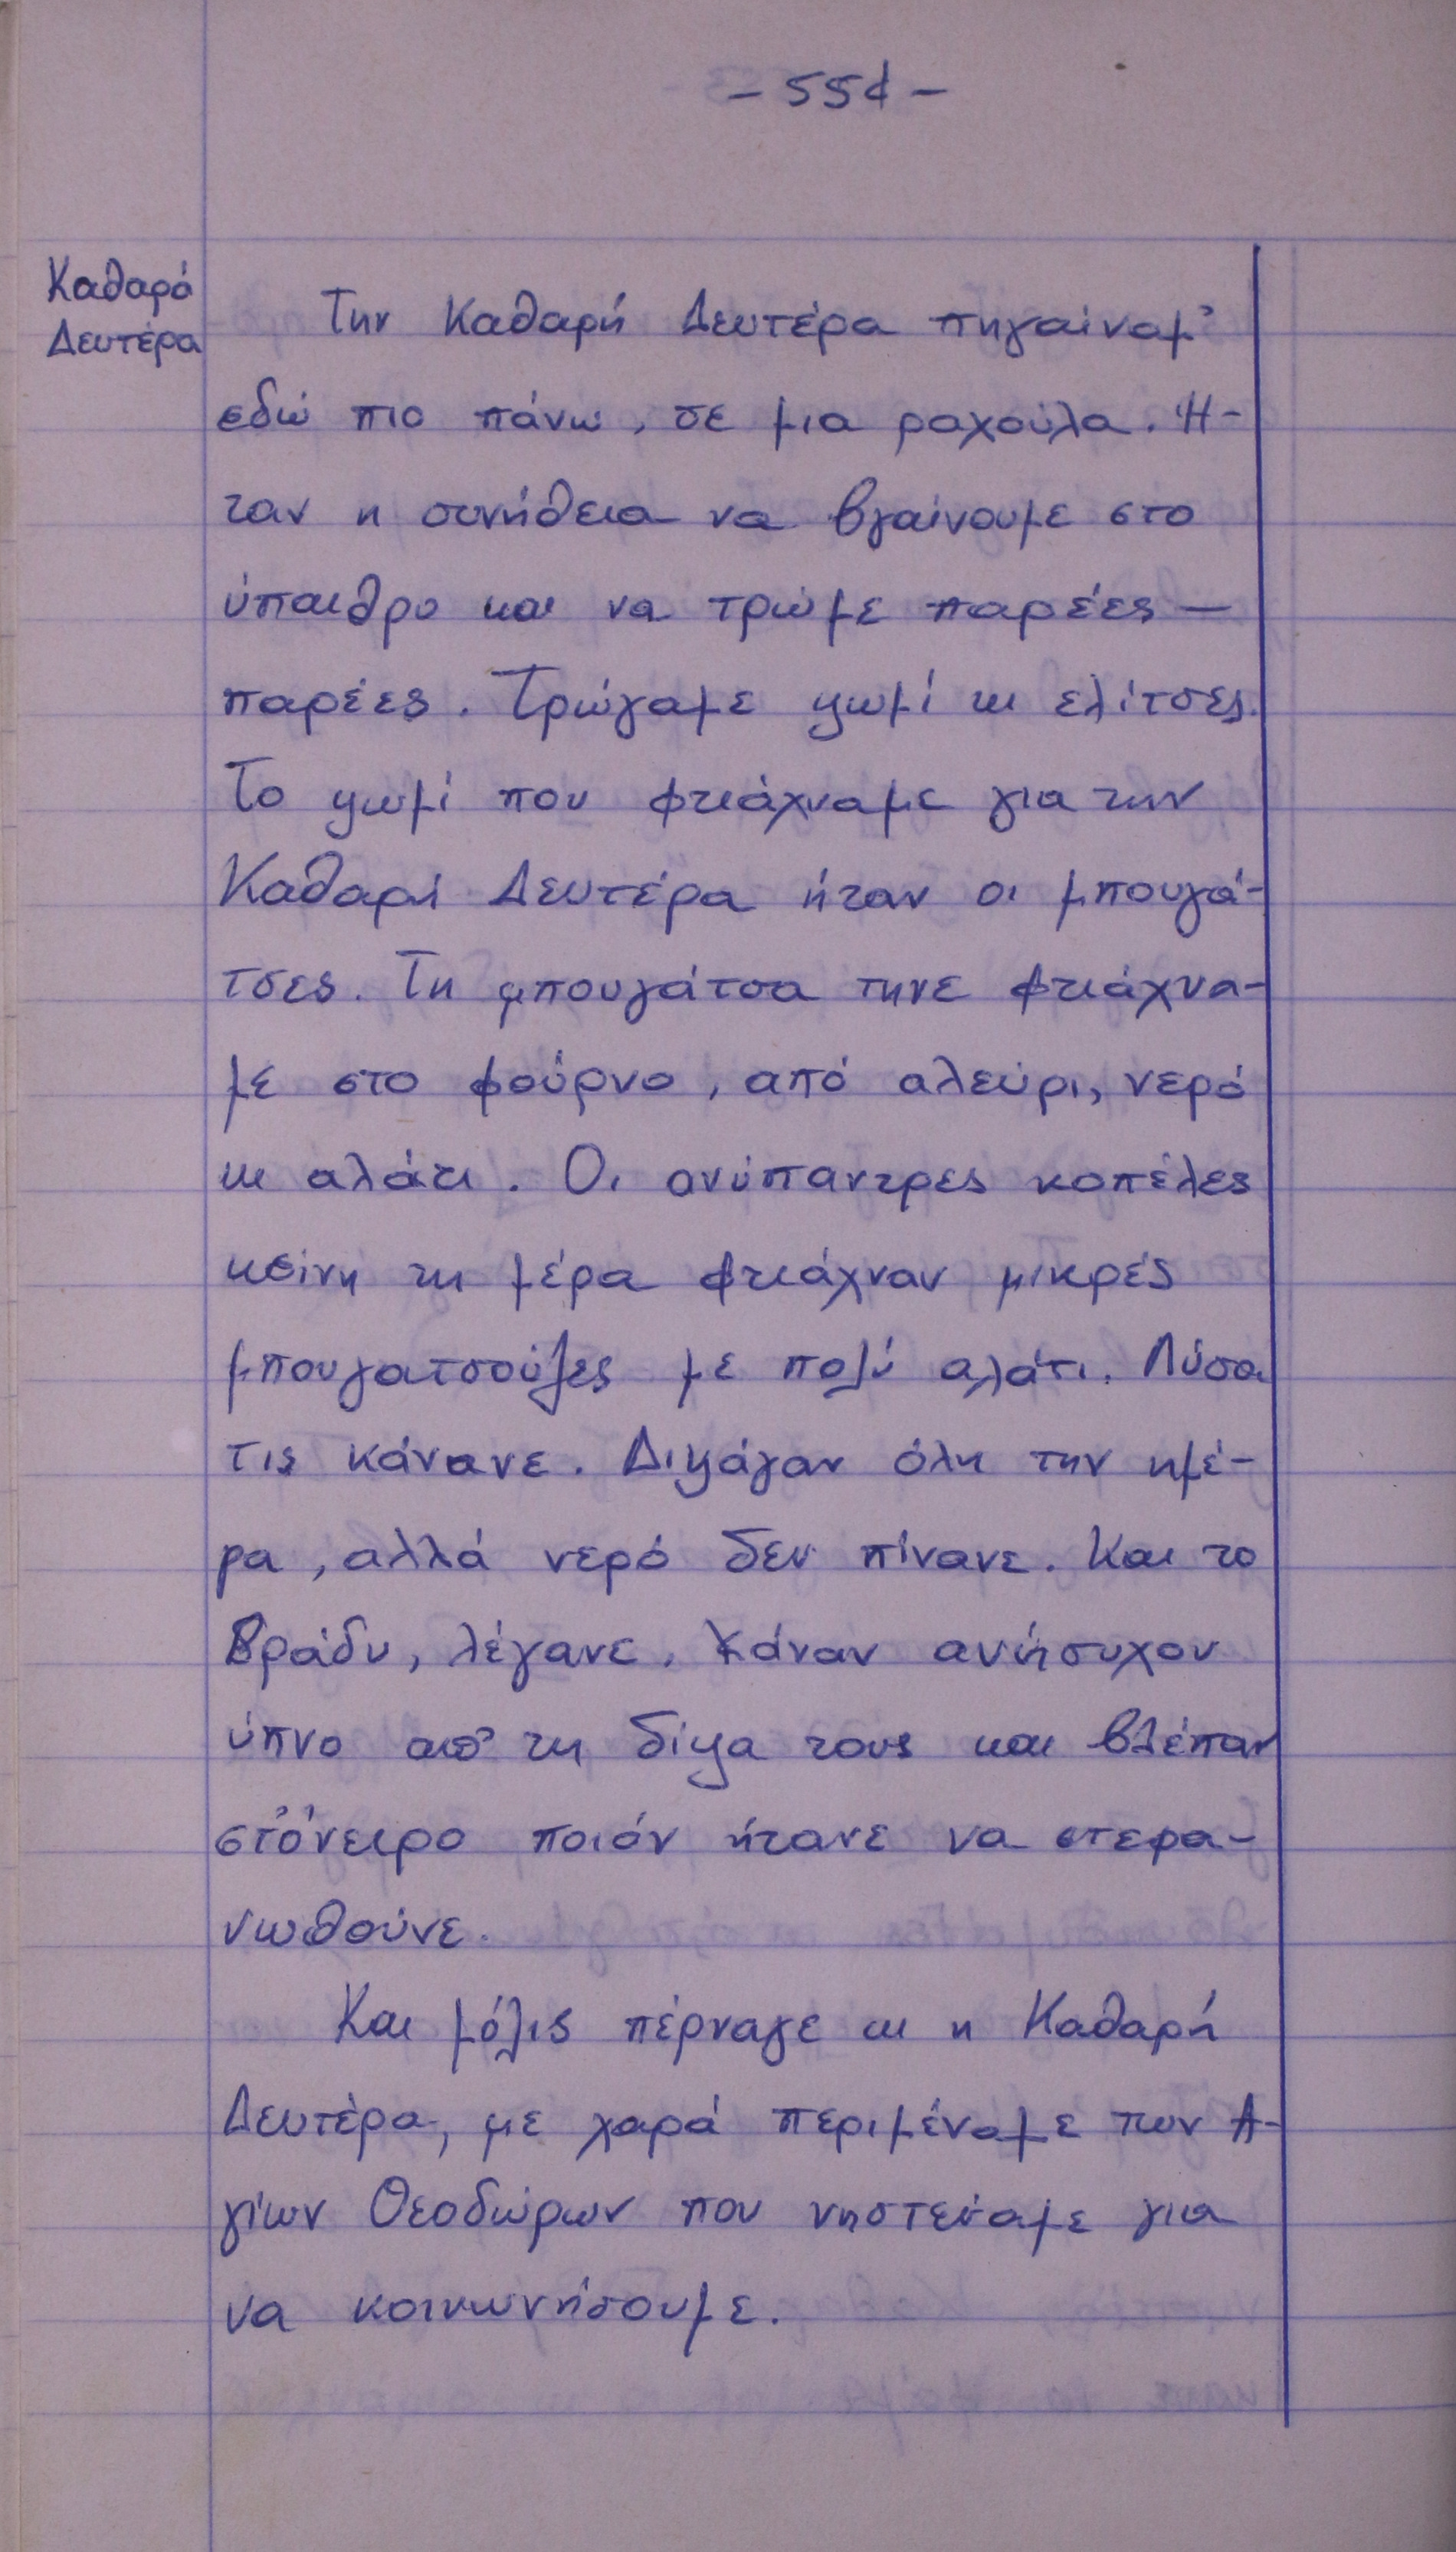 - 554 -
Καθαρά
Δευτέρα
Την Καθαρή Δευτέρα πηγαίναμ'
εδώ πιο πάνω, σε μια ραχούλα. Ή-
ταν η συνήθεια να βγαίνουμε στο
ύπαιθρο και να τρώμε παρέες -
παρέες. Τρώγαμε ψωμί κι ελίτσες.
Το ψωμί που φτιάχναμε για την
Καθαρή Δευτέρα ήταν οι μπουγά-
τσες. Τη μπουγάτσα τηνε φτιάχνα-
με στο φούρνο, από αλεύρι, νερό
κι αλάτι. Οι ανύπαντρες κοπέλες
κείνη τη μέρα φτιάχναν μικρές
μπουγατσούλες με πολύ αλάτι. Λύσα
τις κάνανε. Διψάγαν όλη την ημέ-
ρα, αλλά νερό δεν πίνανε. Και το
βράδυ, λέγανε. Κάναν ανήσυχον
ύπνο απ' τη δίψα τους και βλέπαν
στ' όνειρο ποιόν ήτανε να στεφα-
νωθούνε.
Και μόλις πέρναγε κι η Καθαρή
Δευτέρα, με χαρά περιμέναμε των Α-
γίων Θεοδώρων που νηστεύαμε για
να κοινωνήσουμε.